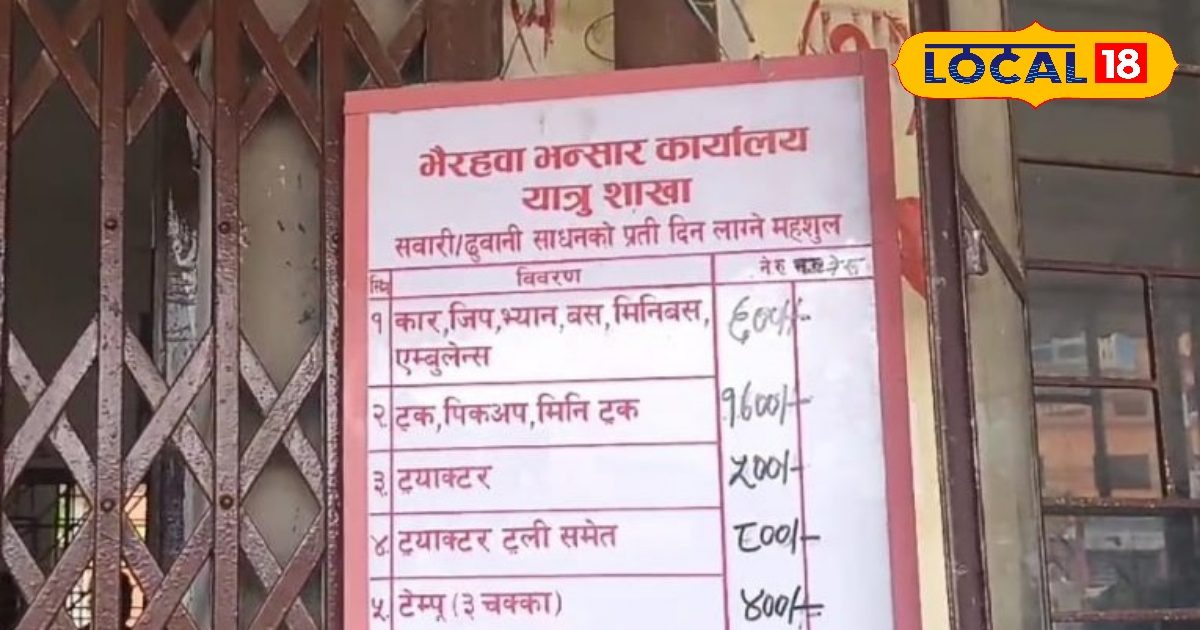 LOCAL 18
भैरहवा भन्सार कार्यालय
यात्रु शाखा
सवारी/ढुवानी साधनको प्रती दिन लाग्ने महशुल
विवरण ने.रु
१ कार,जिप,भ्यान,बस,मिनिबस, ६००/-
एम्बुलेन्स
२ ट्रक,पिकअप,मिनि ट्रक
३ ट्रयाक्टर ५००/-
४ ट्रयाक्टर ट्रली समेत ८००/-
५ टेम्पू (३ चक्का) ४००/-